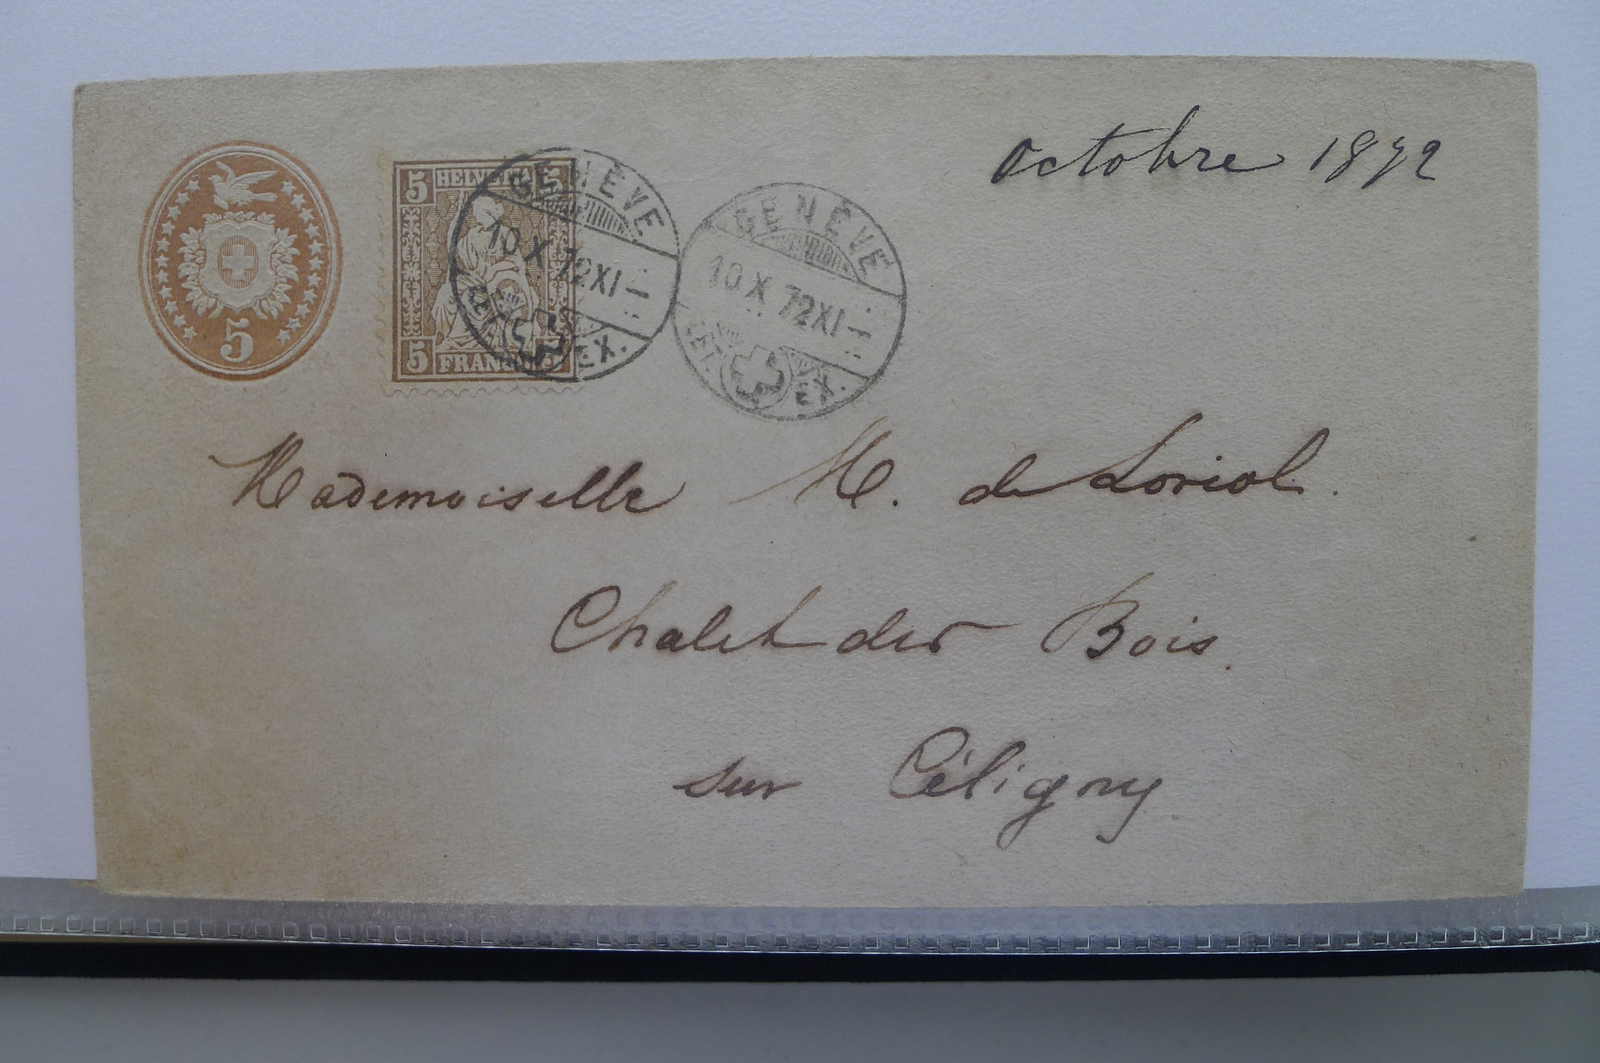 Octobre 1872
5
5 HELVETIA 5
5 FRANCO 5
GENÈVE
10 X 72 XI-
EX.
GENÈVE
10 X 72 XI-
EX.
Mademoiselle M. de Loriol.
Chalet des Bois.
sur Céligny